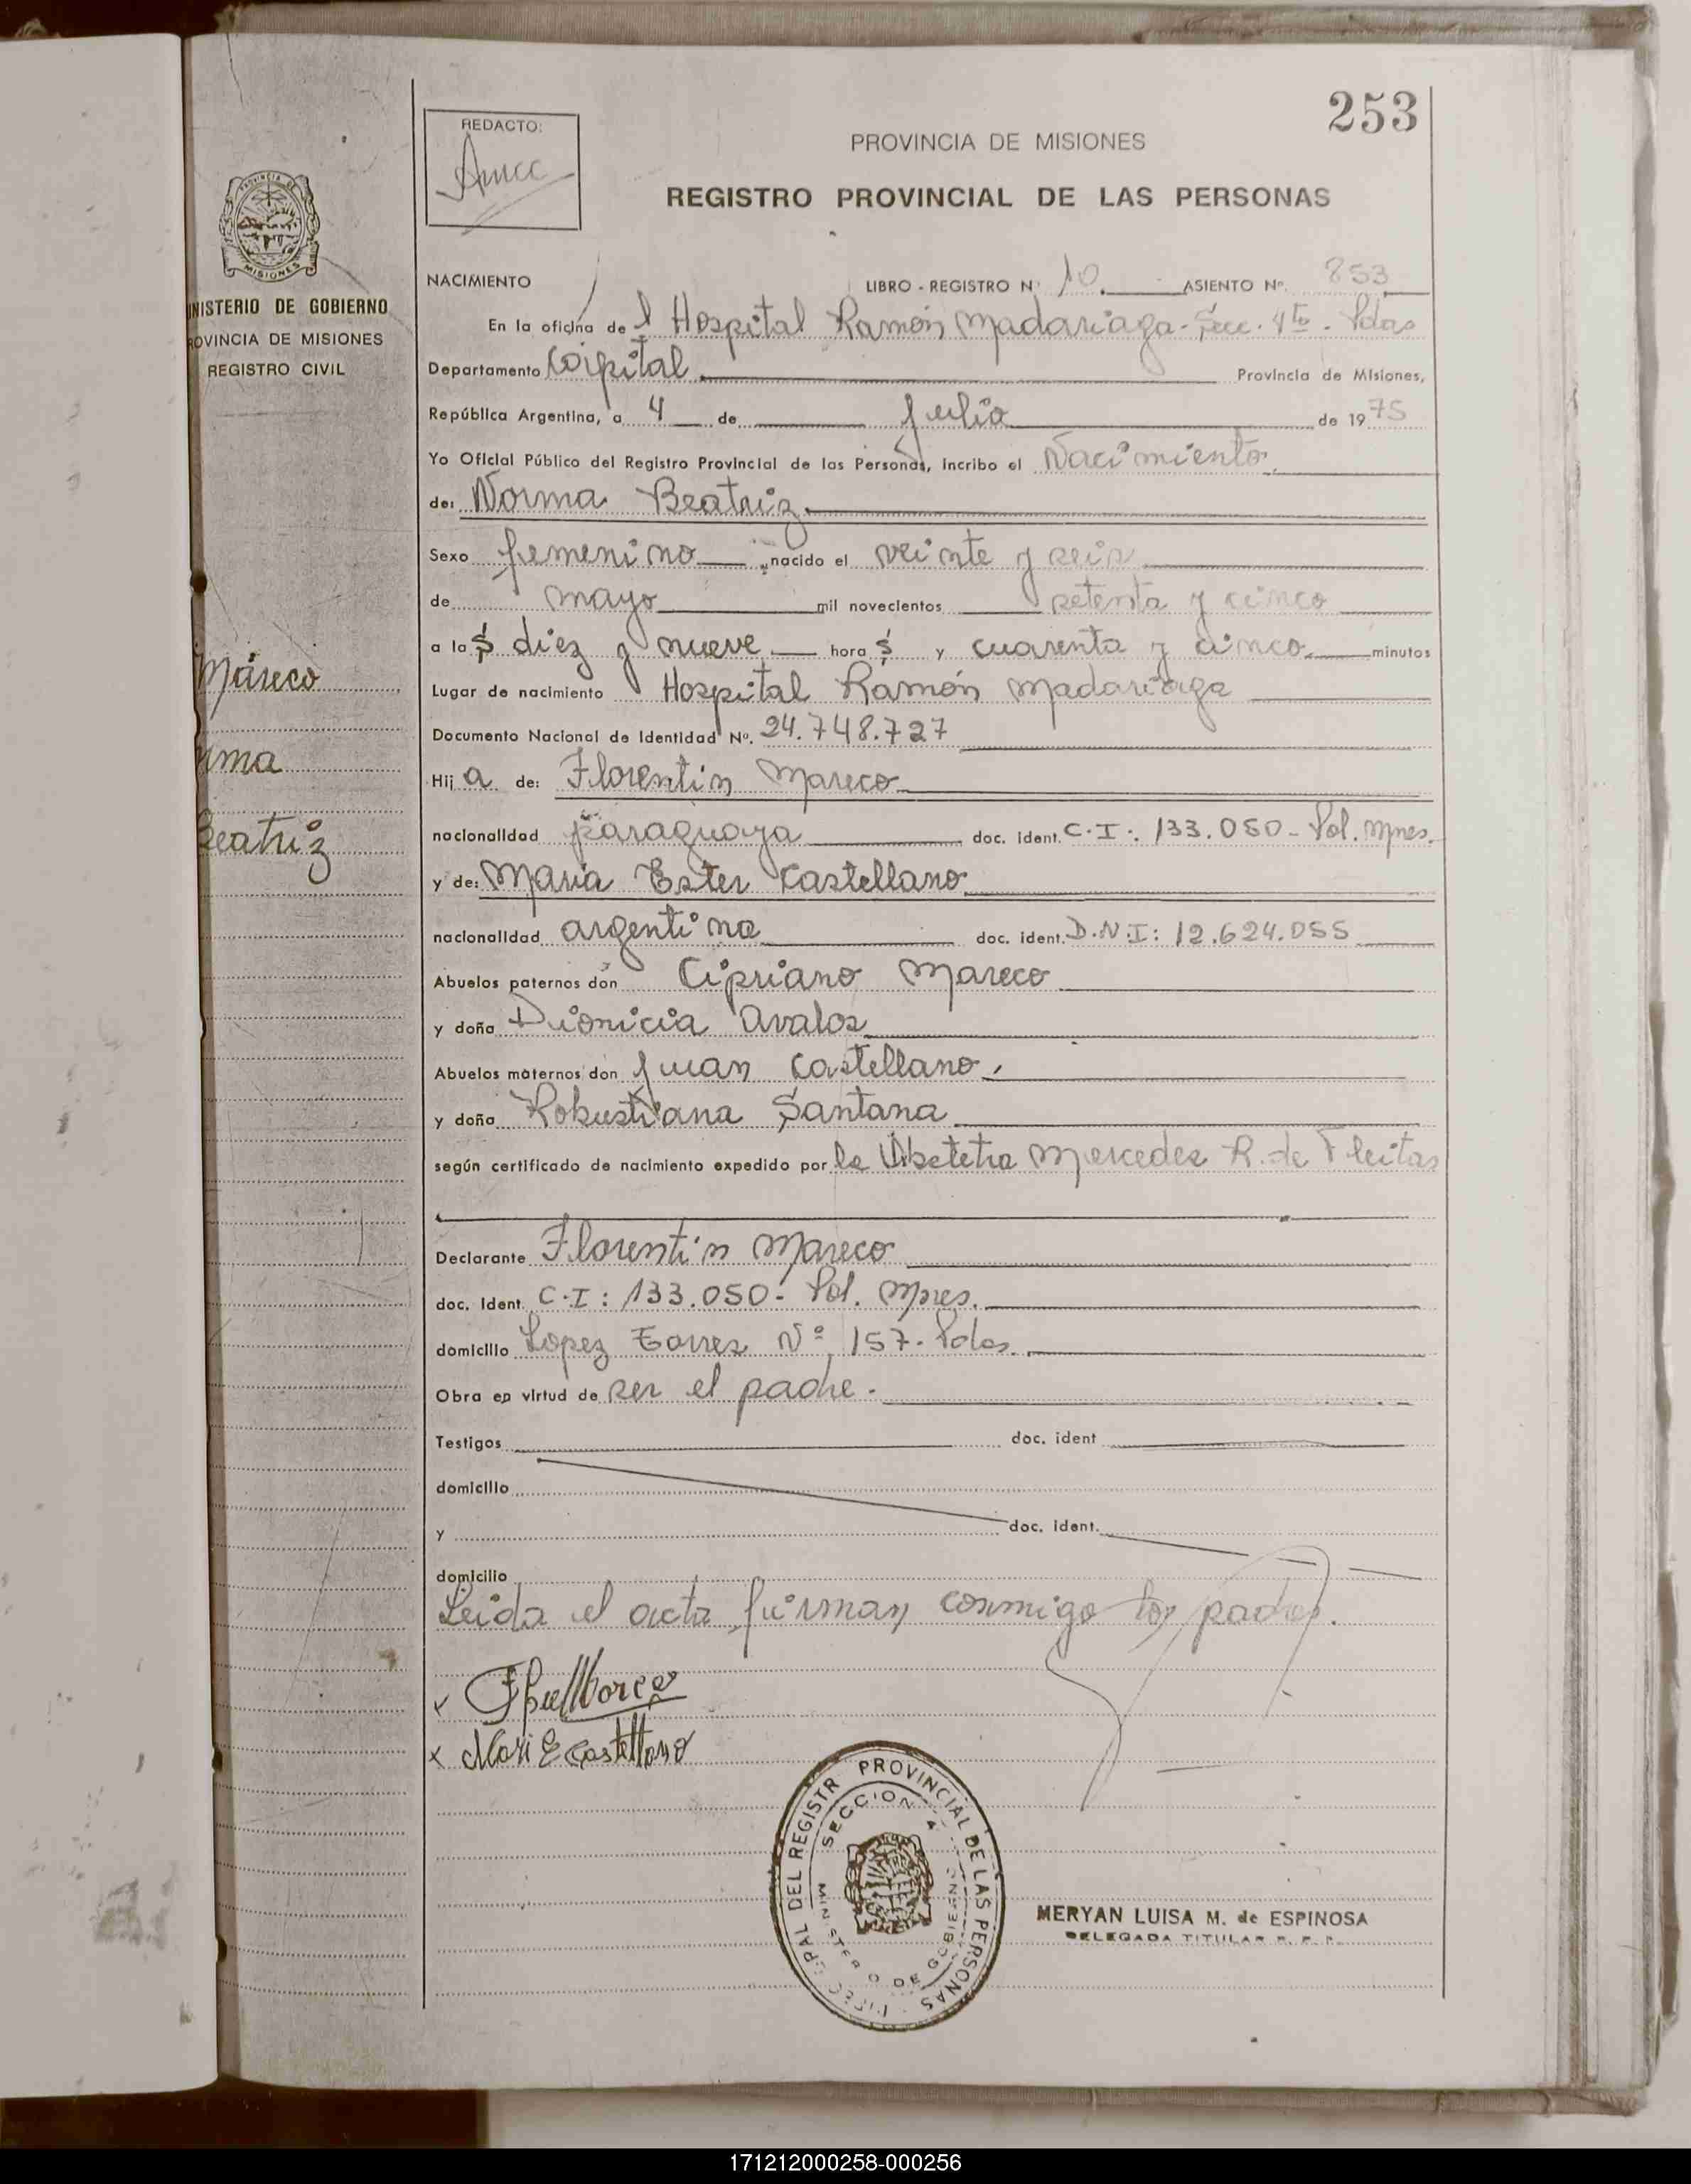 253
REDACTO:
PROVINCIA DE MISIONES
REGISTRO PROVINCIAL DE LAS PERSONAS
MISIONES
NISTERIO DE GOBIERNO
ROVINCIA DE MISIONES
REGISTRO CIVIL
NACIMIENTO LIBRO - REGISTRO Nº 10. ASIENTO Nº. 853
En la oficina del Hospital Ramón Madariaga - Secc. 4ta. Pdas
Departamento Capital Provincia de Misiones,
República Argentina, a 4 de Julio de 1975
Yo Oficial Público del Registro Provincial de las Personas, incribo el Nacimiento
de: Norma Beatriz
Sexo femenino nacido el veinte y seis
de mayo mil novecientos setenta y cinco
a las diez y nueve horas y cuarenta y cinco minutos
Mareco
Lugar de nacimiento Hospital Ramón Madariaga
Documento Nacional de Identidad Nº. 24.748.727
rma
Hija de: Florentin Mareco
Beatriz
nacionalidad paraguaya doc. ident. C.I: 133.050 - Pol. Mnes.
y de: Maria Ester Castellano
nacionalidad argentina doc. ident. D.N.I: 12.624.055
Abuelos paternos don Cipriano Mareco
y doña Dionicia Avalos
Abuelos maternos don Juan Castellano.
y doña Robustiana Santana
según certificado de nacimiento expedido por la Obstetra Mercedes R. de Fleitas
Declarante Florentin Mareco
doc. ident. C.I: 133.050 - Pol. Mnes.
domicilio Lopez Torres Nº 157 - Pdas.
Obra en virtud de ser el padre.
Testigos doc. ident
domicilio
y doc. ident.
domicilio
Leida el acta firman conmigo los padres.
x
x Mari E Castellano
PAL DEL REGISTR PROVINCIAL DE LAS PERSONAS
SECCION 4
MINISTERIO DE GOBIERNO
MERYAN LUISA M. de ESPINOSA
DELEGADA TITULAR R. P. P.
171212000258-000256